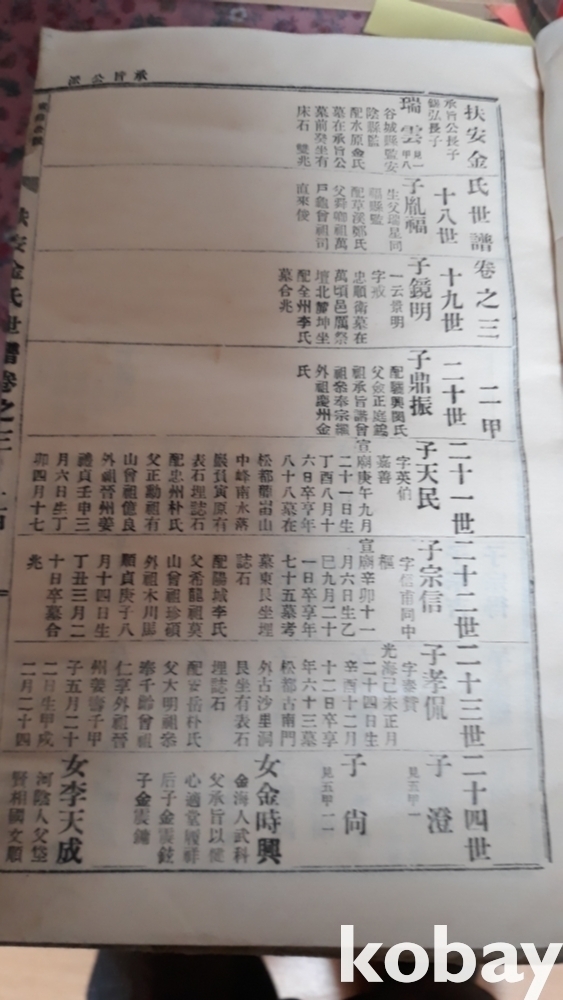 承旨公派
扶安金氏世譜卷之三
二甲
十八世
十九世
二十世
二十一世
二十二世
二十三世
二十四世
承旨公長子
瑞雲
見一
甲八
谷城縣監安
陰縣監
配水原金氏
墓在承旨公
墓前癸坐有
床石
雙兆
子胤福
生父瑞星同
配草溪鄭氏
父舜卿祖萬
戶龜曾祖司
直來俊
子鏡明
一云景明
字戒
忠順衛墓在
萬頃邑厲祭
壇北
坤坐
配全州李氏
墓合兆
子鼎振
配驪興閔氏
父僉正庭鶴
祖承旨謙曾
祖參奉宗
外祖慶州金
氏
子天民
字英伯
嘉善
宣廟庚午九月
二十一日生
丁酉八月十
六日卒享年
八十八墓在
松都
中峰南水落
巖負寅原有
表石埋誌石
配忠州朴氏
父正勳祖有
山曾祖億良
外祖晉州姜
禮貞壬申三
月六日生丁
卯四月十七
子宗信
字信甫同中
樞
宣廟辛卯十一
月六日生乙
巳九月二十
一日卒享年
七十五墓考
墓東艮坐埋
誌石
配陽城李氏
父希龍祖莫
山曾祖珍碩
外祖木川馬
順貞庚子八
月十四日生
丁丑三月二
十日卒墓合
兆
子孝侃
字
光海己未正月
二十四日生
辛酉十二月
十二日卒享
年六十三墓
松都古南門
外古沙里洞
艮坐有表石
埋誌石
配安岳朴氏
父大明祖參
奉千齡曾祖
仁享外祖晉
州姜壽子甲
子五月二十
二日生甲戌
二月二十四
子
澄
見五甲一
子
尙
見五甲一一
女金時興
金海人武科
父承旨以健
心適堂履祥
后子金
子金
女李天成
河陰人父
賢相國文順
kobay